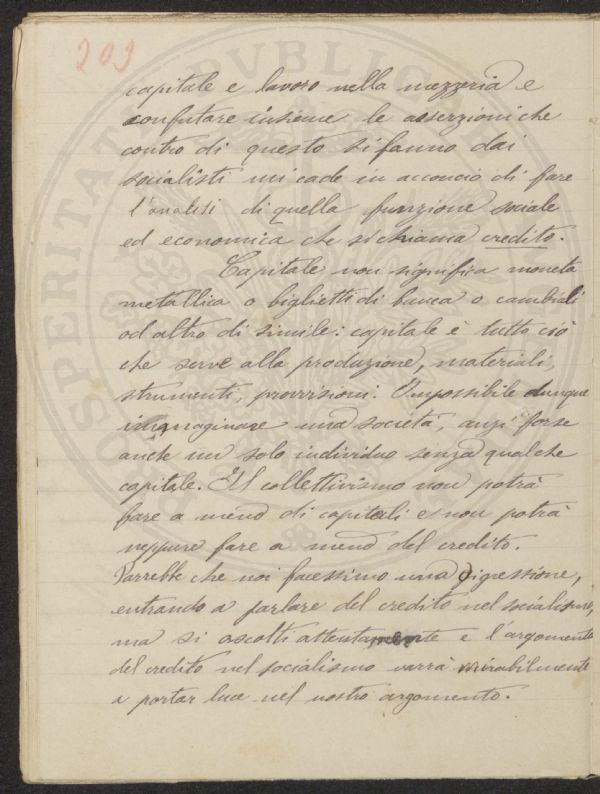 203
capitale e lavoro nella mezzeria e
confutare insieme le asserzioni che
contro di questo si fanno dai
socialisti mi cade in acconcio di fare
l'analisi di quella funzione sociale
ed economica che si chiama credito.
Capitale non significa moneta
metallica o biglietti di banca o cambiali
od altro di simile: capitale è tutto ciò
che serve alla produzione, materiali,
strumenti, provvisioni. Impossibile dunque
immaginare una società, anzi forse
anche un solo individuo senza qualche
capitale. Il collettivismo non potrà
fare a meno di capitali e non potrà
neppure fare a meno del credito.
Parrebbe che noi facessimo una digressione,
entrando a parlare del credito nel socialismo,
ma si ascolti attentamente e l'argomento
del credito nel socialismo varrà mirabilmente
a portar luce nel nostro argomento.